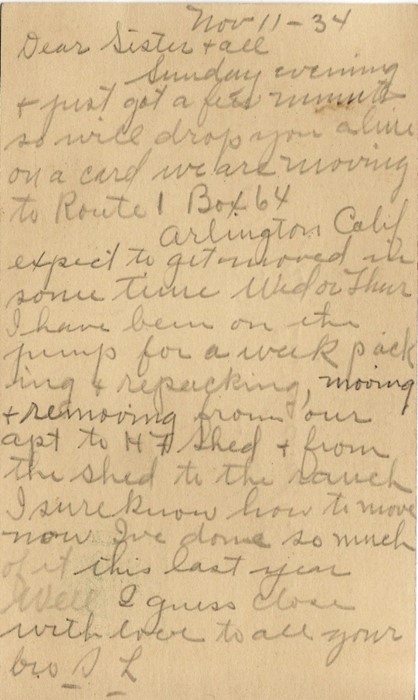 Nov 11-34
Dear Sister + all
Sunday evening
+ just got a few minuts
so will drop you a line
on a card we are moving
to Route 1 Box 64
Arlington Calif
expect to get moved in
some time Wed or Thur
I have been on the
jump for a week pack
ing + repacking, moving
+ remooving from our
apt to H F shed + from
the shed to the ranch
I sure know how to move
now I've done so much
of it this last year
Well I guess close
with love to all your
bro S L